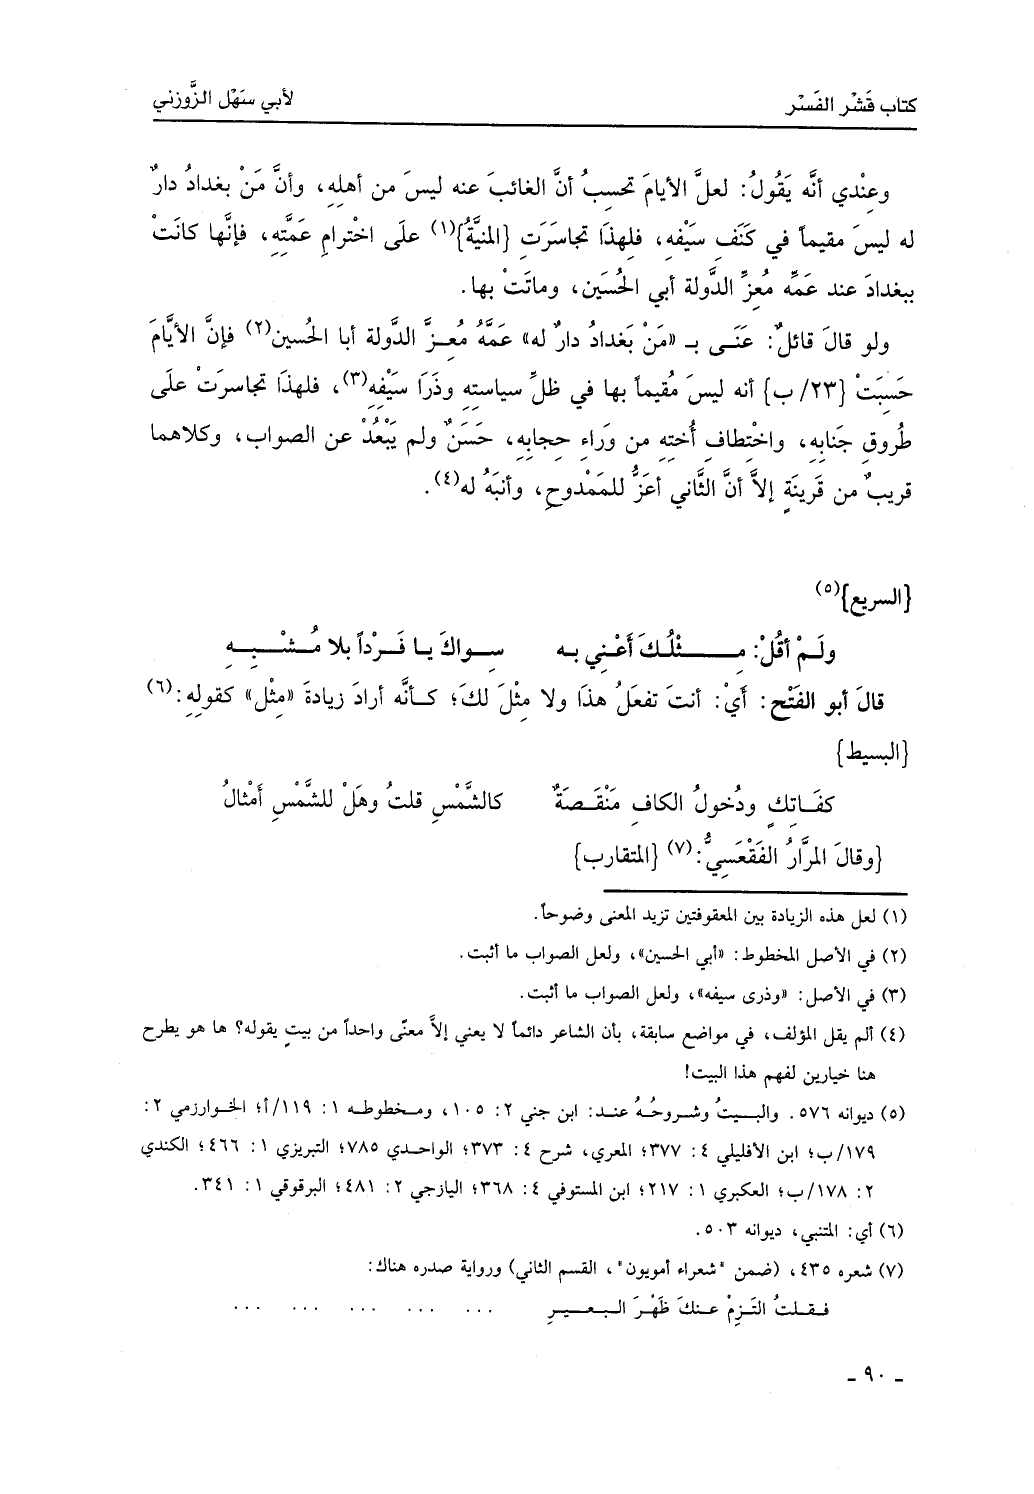 كتاب قَشْر الفَسْر لأبي سَهْل الزَّوزني
وعِنْدي أنَّه يَقُولُ: لعلَّ الأيامَ تحسبُ أنَّ الغائبَ عنه ليسَ من أهلِهِ، وأنَّ مَنْ بغدادُ دارٌ
له ليسَ مقيماً في كَنَفِ سَيْفِهِ، فلهذَا تجاسَرَتِ {المنيَّةُ}(١) علَى اخْترامِ عَمَّتِهِ، فإنَّها كانَتْ
ببغدادَ عند عَمِّه مُعِزِّ الدَّولة أبي الحُسَين، وماتَتْ بها.
ولو قالَ قائلٌ: عَنَـى بـ «مَنْ بَغدادُ دارٌ له» عَمَّهُ مُعـزَّ الدَّولة أبا الحُسين(٢) فإنَّ الأيَّامَ
حَسِبَتْ {٢٣/ ب} أنه ليسَ مُقيماً بها في ظلِّ سياستِهِ وذَرَا سَيْفِهِ(٣)، فلهذَا تجاسرَتْ علَى
طُروقِ جَنَابِهِ، واخْتطافِ أُختِهِ من وَرَاءِ حجابِهِ، حَسَنٌ ولم يَبْعُدْ عن الصواب، وكلاهما
قريبٌ من قَرِينَةٍ إلاَّ أنَّ الثَّاني أعَزُّ للمَمْدوحِ، وأنبَهُ له(٤).
{السريع}(٥)
ولَـمْ أقُلْ: مِـــثْلُـكَ أَعْـنِي بـه سـواكَ يـا فَـرْداً بلا مُـشْـبِـهِ
قالَ أبو الفَتْح: أَيْ: أنتَ تفعَلُ هذَا ولا مِثْلَ لكَ؛ كـأنَّه أرادَ زيادةَ «مِثْل» كقولِهِ:(٦)
{البسيط}
كفَـاتِكٍ ودُخولُ الكافِ مَنْقَـصَةٌ كالشَّمْسِ قلتُ وهَلْ للشَّمْسِ أَمْثالُ
{وقالَ المرَّارُ الفَقْعَسِيُّ:(٧) {المتقارب}
(١) لعل هذه الزيادة بين المعقوفتين تزيد المعنى وضوحاً.
(٢) في الأصل المخطوط: «أبي الحسين»، ولعل الصواب ما أثبت.
(٣) في الأصل: «وذرى سيفه»، ولعل الصواب ما أثبت.
(٤) ألم يقل المؤلف، في مواضع سابقة، بأن الشاعر دائماً لا يعني إلاَّ معنًى واحداً من بيتٍ يقوله؟ ها هو يطرح
هنا خيارين لفهم هذا البيت!
(٥) ديوانه ٥٧٦. والبـيتُ وشروحُـهُ عنـد: ابن جني ٢: ١٠٥، ومـخطوطـه ١: ١١٩/أ؛ الخـوارزمي ٢:
١٧٩/ب؛ ابن الأفليلي ٤: ٣٧٧؛ المعري، شرح ٤: ٣٧٣؛ الواحـدي ٧٨٥؛ التبريزي ١: ٤٦٦؛ الكندي
٢: ١٧٨/ب؛ العكبري ١: ٢١٧؛ ابن المستوفي ٤: ٣٦٨؛ اليازجي ٢: ٤٨١؛ البرقوقي ١: ٣٤١.
(٦) أي: المتنبي، ديوانه ٥٠٣.
(٧) شعره ٤٣٥، (ضمن "شعراء أمويون"، القسم الثاني) ورواية صدره هناك:
فـقـلـتُ التَـزِمْ عـنـكَ ظَهْـرَ الـبـعـيـرِ ... ... ... ... ...
- ٩٠ -